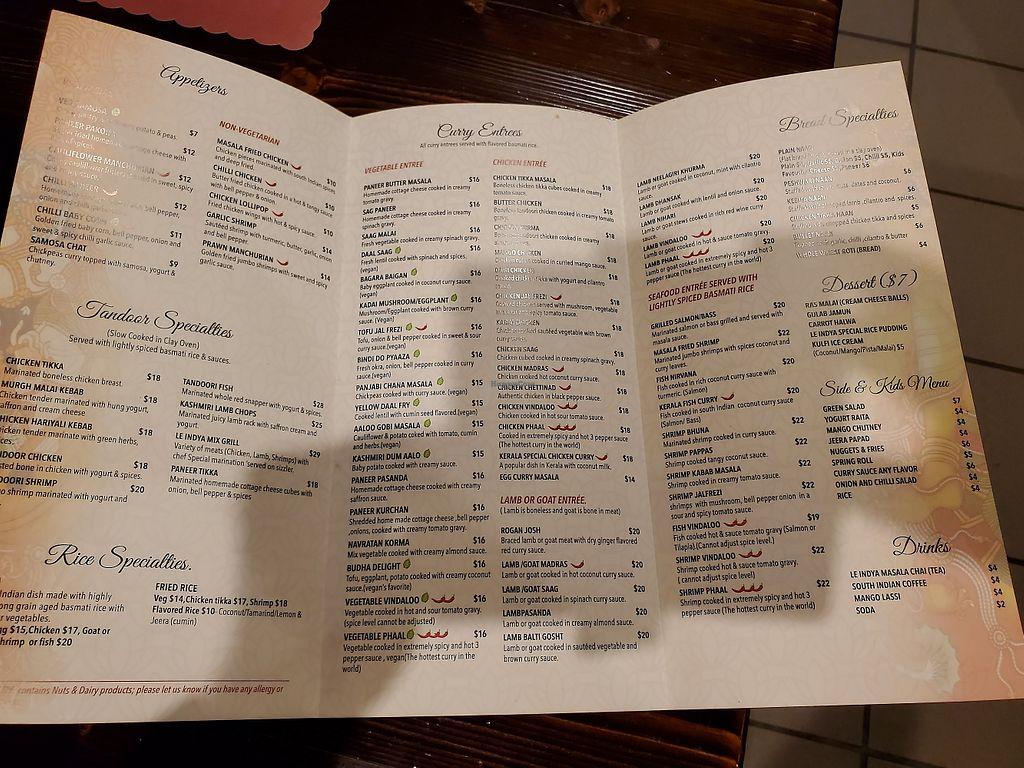 Appetizers
SAMOSA
potato & peas.
$7
$12
CAULIFLOWER MANCHURIAN
$12
CHILLI
bell pepper,
$12
CHILLI BABY CORN
$11
Golden fried baby corn, bell pepper, onion and
sweet & spicy chilli garlic sauce.
SAMOSA CHAT
$9
Chickpeas curry topped with samosa, yogurt &
chutney.
NON-VEGETARIAN
MASALA FRIED CHICKEN
$10
Chicken pieces marinated with south Indian spices
and deep fried.
CHILLI CHICKEN
$10
Butter fried chicken cooked in a hot & tangy sauce
with bell pepper & onion.
CHICKEN LOLLIPOP
$10
Fried chicken wings with hot & spicy sauce.
GARLIC SHRIMP
$14
Sautéed shrimp with turmeric, butter, garlic, onion
and bell pepper.
PRAWN MANCHURIAN
$14
Golden fried jumbo shrimps with sweet and spicy
garlic sauce.
Tandoor Specialties
(Slow Cooked in Clay Oven)
Served with lightly spiced basmati rice & sauces.
CHICKEN TIKKA
$18
Marinated boneless chicken breast.
MURGH MALAI KEBAB
$18
Chicken tender marinated with hung yogurt,
saffron and cream cheese
CHICKEN HARIYALI KEBAB
$18
chicken tender marinate with green herbs,
CHICKEN
$18
bone in chicken with yogurt & spices.
SHRIMP
$20
shrimp marinated with yogurt and
TANDOORI FISH
$28
Marinated whole red snapper with yogurt & spices.
KASHMRI LAMB CHOPS
$25
Marinated juicy lamb rack with saffron cream and
yogurt.
LE INDYA MIX GRILL
$29
Variety of meats (Chicken, Lamb, Shrimps) with
chef Special marination 'served on sizzler.
PANEER TIKKA
$18
Marinated homemade cottage cheese cubes with
onion, bell pepper & spices
Rice Specialties.
Indian dish made with highly
long grain aged basmati rice with
vegetables.
$15,Chicken $17, Goat or
or fish $20
FRIED RICE
Veg $14,Chicken tikka $17, Shrimp $18
Flavored Rice $10- Coconut/Tamarind/Lemon &
Jeera (cumin)
contains Nuts & Dairy products; please let us know if you have any allergy or
Curry Entrees
All curry entrees served with flavored basmati rice.
VEGETABLE ENTREE
PANEER BUTTER MASALA $16
Homemade cottage cheese cooked in creamy
tomato gravy.
SAG PANEER $16
Homemade cottage cheese cooked in creamy
spinach gravy.
SAAG MALAI $16
Fresh vegetable cooked in creamy spinach gravy.
DAAL SAAG $16
Fresh lentil cooked with spinach and spices.
(vegan)
BAGARA BAIGAN $16
Baby eggplant cooked in coconut curry sauce.
(vegan)
KADAI MUSHROOM/EGGPLANT $16
Mushroom/Eggplant cooked with brown curry
sauce. (Vegan)
TOFU JAL FREZI $16
Tofu, onion & bell pepper cooked in sweet & sour
curry sauce.(vegan)
BINDI DO PYAAZA $16
Fresh okra, onion, bell pepper cooked in curry
sauce.(vegan)
PANJABI CHANA MASALA $15
Chickpeas cooked with curry sauce. (vegan)
YELLOW DAAL FRY $15
Cooked lentil with cumin seed flavored.(vegan)
AALOO GOBI MASALA $15
Cauliflower & potato coked with tomato, cumin
and herbs.(vegan)
KASHMIRI DUM AALO $15
Baby potato cooked with creamy sauce.
PANEER PASANDA $16
Homemade cottage cheese cooked with creamy
saffron sauce.
PANEER KURCHAN $16
Shredded home made cottage cheese ,bell pepper
,onions, cooked with creamy tomato gravy.
NAVRATAN KORMA $16
Mix vegetable cooked with creamy almond sauce.
BUDHA DELIGHT $16
Tofu, eggplant, potato cooked with creamy coconut
sauce.(vegan's favorite)
VEGETABLE VINDALOO $16
Vegetable cooked in hot and sour tomato gravy.
(spice level cannot be adjusted)
VEGETABLE PHAAL $16
Vegetable cooked in extremely spicy and hot 3
pepper sauce , vegan(The hottest curry in the
world)
CHICKEN ENTRÉE
CHICKEN TIKKA MASALA $18
Boneless chicken tikka cubes cooked in creamy
tomato sauce.
BUTTER CHICKEN $18
Boneless tandoori chicken cooked in creamy tomato
$18
chicken cooked in creamy
$18
cooked in curried mango sauce.
$18
with yogurt and cilantro
CHICKEN JAL FREZI $18
served with mushroom, vegetable
$18
sautéed vegetable with brown
CHICKEN SAAG $18
Chicken cubed cooked in creamy spinach gravy.
CHICKEN MADRAS $18
Chicken cooked hot coconut curry sauce.
CHICKEN CHETTINAD $18
Authentic chicken in black pepper sauce.
CHICKEN VINDALOO $18
Chicken cooked in hot sour tomato sauce.
CHICKEN PHAAL $18
Cooked in extremely spicy and hot 3 pepper sauce
(The hottest curry in the world)
KERALA SPECIAL CHICKEN CURRY $18
A popular dish in Kerala with coconut milk.
EGG CURRY MASALA $14
LAMB OR GOAT ENTRÉE.
( Lamb is boneless and goat is bone in meat)
ROGAN JOSH $20
Braced lamb or goat meat with dry ginger flavored
red curry sauce.
LAMB /GOAT MADRAS $20
Lamb or goat cooked in hot coconut curry sauce.
LAMB/GOAT SAAG $20
Lamb or goat cooked in spinach curry sauce.
LAMBPASANDA $20
Lamb or goat cooked in creamy almond sauce.
LAMB BALTI GOSHT $20
Lamb or goat cooked in sautéed vegetable and
brown curry sauce.
LAMB NEELAGIRI KHURMA $20
Lamb or goat cooked in coconut, mint with cilantro
sauce.
LAMB DHANSAK $20
Lamb or goat cooked with lentil and onion sauce.
LAMB NIHARI $20
Lamb or goat stews cooked in rich red wine curry
sauce.
LAMB VINDALOO $20
Lamb or goat cooked in hot & sour tomato sauce.
LAMB PHAAL $20
Lamb or goat cooked in extremely spicy and hot 3
pepper sauce (The hottest curry in the world)
SEAFOOD ENTRÉE SERVED WITH
LIGHTLY SPICED BASMATI RICE
GRILLED SALMON/BASS $20
Marinated salmon or bass grilled and served with
MASALA FRIED SHRIMP $22
Marinated jumbo shrimps with spices coconut and
curry leaves.
FISH NIRVANA $22
Fish cooked in rich coconut curry sauce with
turmeric. (Simon)
KERALA FISH CURRY $22
Fish cooked in south indian. coconut curry sauce
(Salmon/ Bass)
SHRIMP BHUNA $22
Marinated shrimp cooked in curry sauce.
SHRIMP PAPPAS $22
Shrimp cooked tangy coconut sauce.
SHRIMP KABAB MASALA $22
Shrimp cooked in creamy tomato sauce.
SHRIMP JALFREZI $22
shrimps with mushroom, bell pepper onion in a
sour and spicy tomato sauce.
FISH VINDALOO $19
Fish cooked hot & sauce tomato gravy (Salmon or
Tilapia).(Cannot adjust spice level.)
SHRIMP VINDALOO $22
Shrimp cooked hot & sauce tomato gravy.
( cannot adjust spice level)
SHRIMP PHAAL $22
Shrimp cooked in extremely spicy and hot 3
pepper sauce (The hottest curry in the world)
Bread Specialties
PLAIN NAAN
$5, Chilli $5, Kids
$6
dates and coconut.
$6
lamb, cilantro and spices.
$6
chopped chicken tikka and spices
$6
garlic, chilli, cilantro & butter
WHOLE WHEAT ROTI (BREAD) $4
Dessert ($7)
RAS MALAI (CREAM CHEESE BALLS)
GULAB JAMUN
CARROT HALWA
LE INDYA SPECIAL RICE PUDDING
KULFI ICE CREAM
(Coconut/Mango/Pista/Malai) $5
Side & Kids Menu
GREEN SALAD $7
YOGURT RAITA $4
MANGO CHUTNEY $4
JEERA PAPAD $4
NUGGETS & FRIES $6
SPRING ROLL $5
CURRY SAUCE ANY FLAVOR $6
ONION AND CHILLI SALAD $4
RICE $4
Drinks
LE INDYA MASALA CHAI (TEA) $4
SOUTH INDIAN COFFEE $4
MANGO LASSI $4
SODA $2